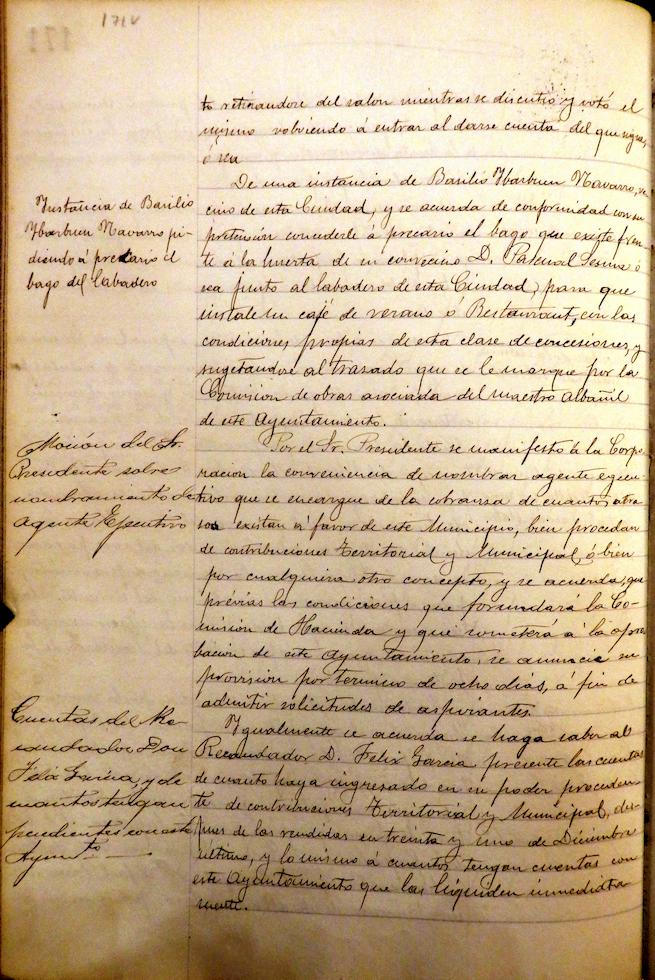 171v
to retirandose del salon mientras se discutió y votó el
mismo volviendo á entrar al darse cuenta del que sigue,
ó sea
Instancia de Basilio
Ybarbuen Navarro pi-
diendo á precario el
bago del labadero
De una instancia de Basilio Ybarbuen Navarro, ve-
cino de esta Ciudad, y se acuerda de conformidad con su
pretensión concederle á precario el bago que existe fren-
te á la huerta de su convecino D. Pascual Sesma ó
sea junto al labadero de esta Ciudad, para que
instale un café de verano ó Restaurant, con las
condiciones propias de esta clase de concesiones, y
sugetandose al trasado que se le marque por la
Comision de obras asociada del maestro Albañil
de este Ayuntamiento.
Moción del Sr.
Presidente sobre
nombramiento de
agente Ejecutivo
Por el Sr. Presidente se manifestó á la Corpo-
ración la conveniencia de nombrar agente egecu-
tivo que se encargue de la cobransa de cuantos atra
sos existan á favor de este Municipio, bien procedan
de contribuciones Territorial y Municipal, ó bien
por cualquiera otro concepto, y se acuerda, que
prévias las condiciones que formulará la Co-
mision de Hacienda y que someterá á la apro
bación de este Ayuntamiento, se anuncie su
provision por termino de ocho dias, á fin de
admitir solicitudes de aspirantes.
Cuentas del Re-
caudador Don
Felix Garcia, y de
cuantos tengan
pendientes con este
Ayunto
Igualmente se acuerda se haga saber al
Recaudador D. Felix Garcia presente las cuentas
de cuanto haya ingresado en su poder proceden-
te de contribuciones Territorial y Municipal, des-
pues de las rendidas en treinta y uno de Diciembre
ultimo, y lo mismo á cuantos tengan cuentas con
este Ayuntamiento que las liquiden inmediata
mente.